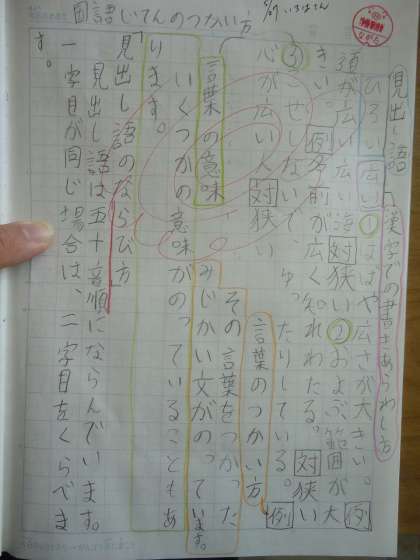 国語じてんのつかい方
見出し語
漢字での書きあらわし方
ひろい 広い ①はばや広さが大きい。例
道が広い 広い海 対狭い ②およぶ範囲が大
きい。例名前が広く知れわたる。対狭い
③こせこせしないで、ゆったりしている。例
心が広い人 対狭い
言葉のつかい方
その言葉をつかった
みじかい文がのっています。
言葉の意味
いくつかの意味がのっていることもあ
ります。
見出し語のならび方
見出し語は五十音順にならんでいます。
一字目が同じ場合は、二字目をくらべま
す。